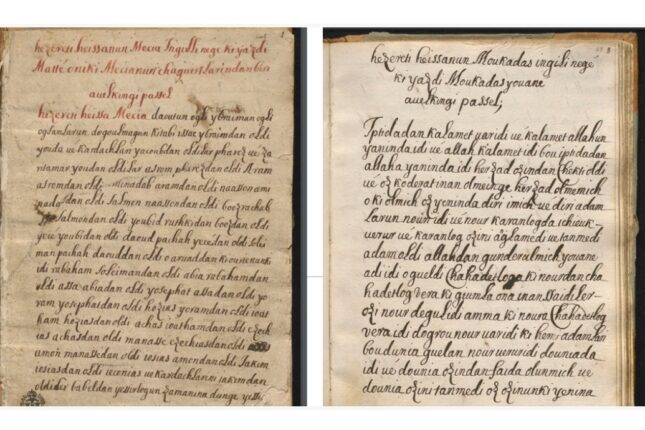 hezereti heissanun Mecia Ingillenege ki yazdi
Matté oniki Mecianun chaguirtlarindan biri
auelkingi passel
hezereti heissa Mecia daoutun ogli ybraiman ogli
oglanlarun, dogoulmagun kitabi issac ybraimdan oldi
youda ve kardachlari yacoubdan oldilar pharez ve za
ntamar youdan oldilar asrom pharezdan oldi Aram
asromdan oldi minadab aramdan oldi naasson ami
nadabdan oldi salmon naassondan oldi booz rachab
salmondan oldi youbid ruthkidan boozdan oldi
yece youbidan oldi daoud pachah yeceдan oldi solei
man pachah daouddan oldi o arvaddan ki ourienun ki
idi rabaham soleimandan oldi abia rabahamdan
oldi assa abiadan oldi yosephat assadan oldi yo
ram yosephatdan oldi hozias yoramdan oldi ioat
ham hoziasdan oldi achas ioathamdan oldi ezech
ias achasdan oldi manasse ezechiasdan oldi
amon manassedan oldi iosias amondan oldi Jakim
iosiasdan oldi ieconias ve kardachlarini jakimdan
oldilar babeldan yessirlogun zamanina dunge yessir
hezereti heissanun Moukadas ingilinege
ki yazdi Moukadas youane
auelkingi passel;
Iptidadan kalamet varidi ve kalamet allahun
yaninda idi ve allah kalamet idi bou iptidadan
allaha yaninda idi herzad ozindan chekti oldi
ve oz kodenatinan olmeinge herzad olmemich
o ki olmich oz yeninda diri imich ve diri adam
larun nour idi ve nour karanlogda ichieuk-
verur ve karanlog ozini aglamedi ve tanmedi
adam oldi allahdan gunderulmich youane
adi idi o gueldi chahadetloga ki nourdan cha
hadetlog vera ki giumla ona inanssaidiler-
ozi nour degul idi amma ki noura chahadetlog
vera idi dogrou nour varidi ki hemi adamlari
bou dunia guelan nour verur idi douniada
idi ve dounia ozindan faida olunmich ve
dounia ozini tanmedi oz ozinunki yenina